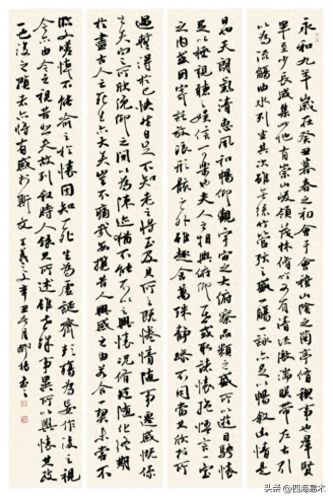 永和九年歲在癸丑暮春之初會于會稽山陰之蘭亭修禊事也羣賢
畢至少長咸集此地有崇山峻領茂林修竹又有清流激湍映帶左右引
以為流觴曲水列坐其次雖無絲竹管弦之盛一觴一詠亦足以暢叙幽情是
日也天朗氣清惠風和暢仰觀宇宙之大俯察品類之盛所以遊目騁懷
足以極視聽之娛信可樂也夫人之相與俯仰一世或取諸懷抱悟言一室
之內或因寄所託放浪形骸之外雖趣舍萬殊靜躁不同當其欣於所
遇暫得於己快然自足不知老之將至及其所之既惓情隨事遷感慨係
之矣向之所欣俛仰之間以為陳迹猶不能不以之興懷況脩短隨化終期
於盡古人云死生亦大矣豈不痛哉每攬昔人興感之由若合一契未嘗不
臨文嗟悼不能喻之於懷固知一死生為虛誕齊彭殤為妄作後之視
今亦由今之視昔悲夫故列叙時人錄其所述雖世殊事異所以興懷其致
一也後之覽者亦將有感於斯文 王羲之 辛丑
头条 @四海易木